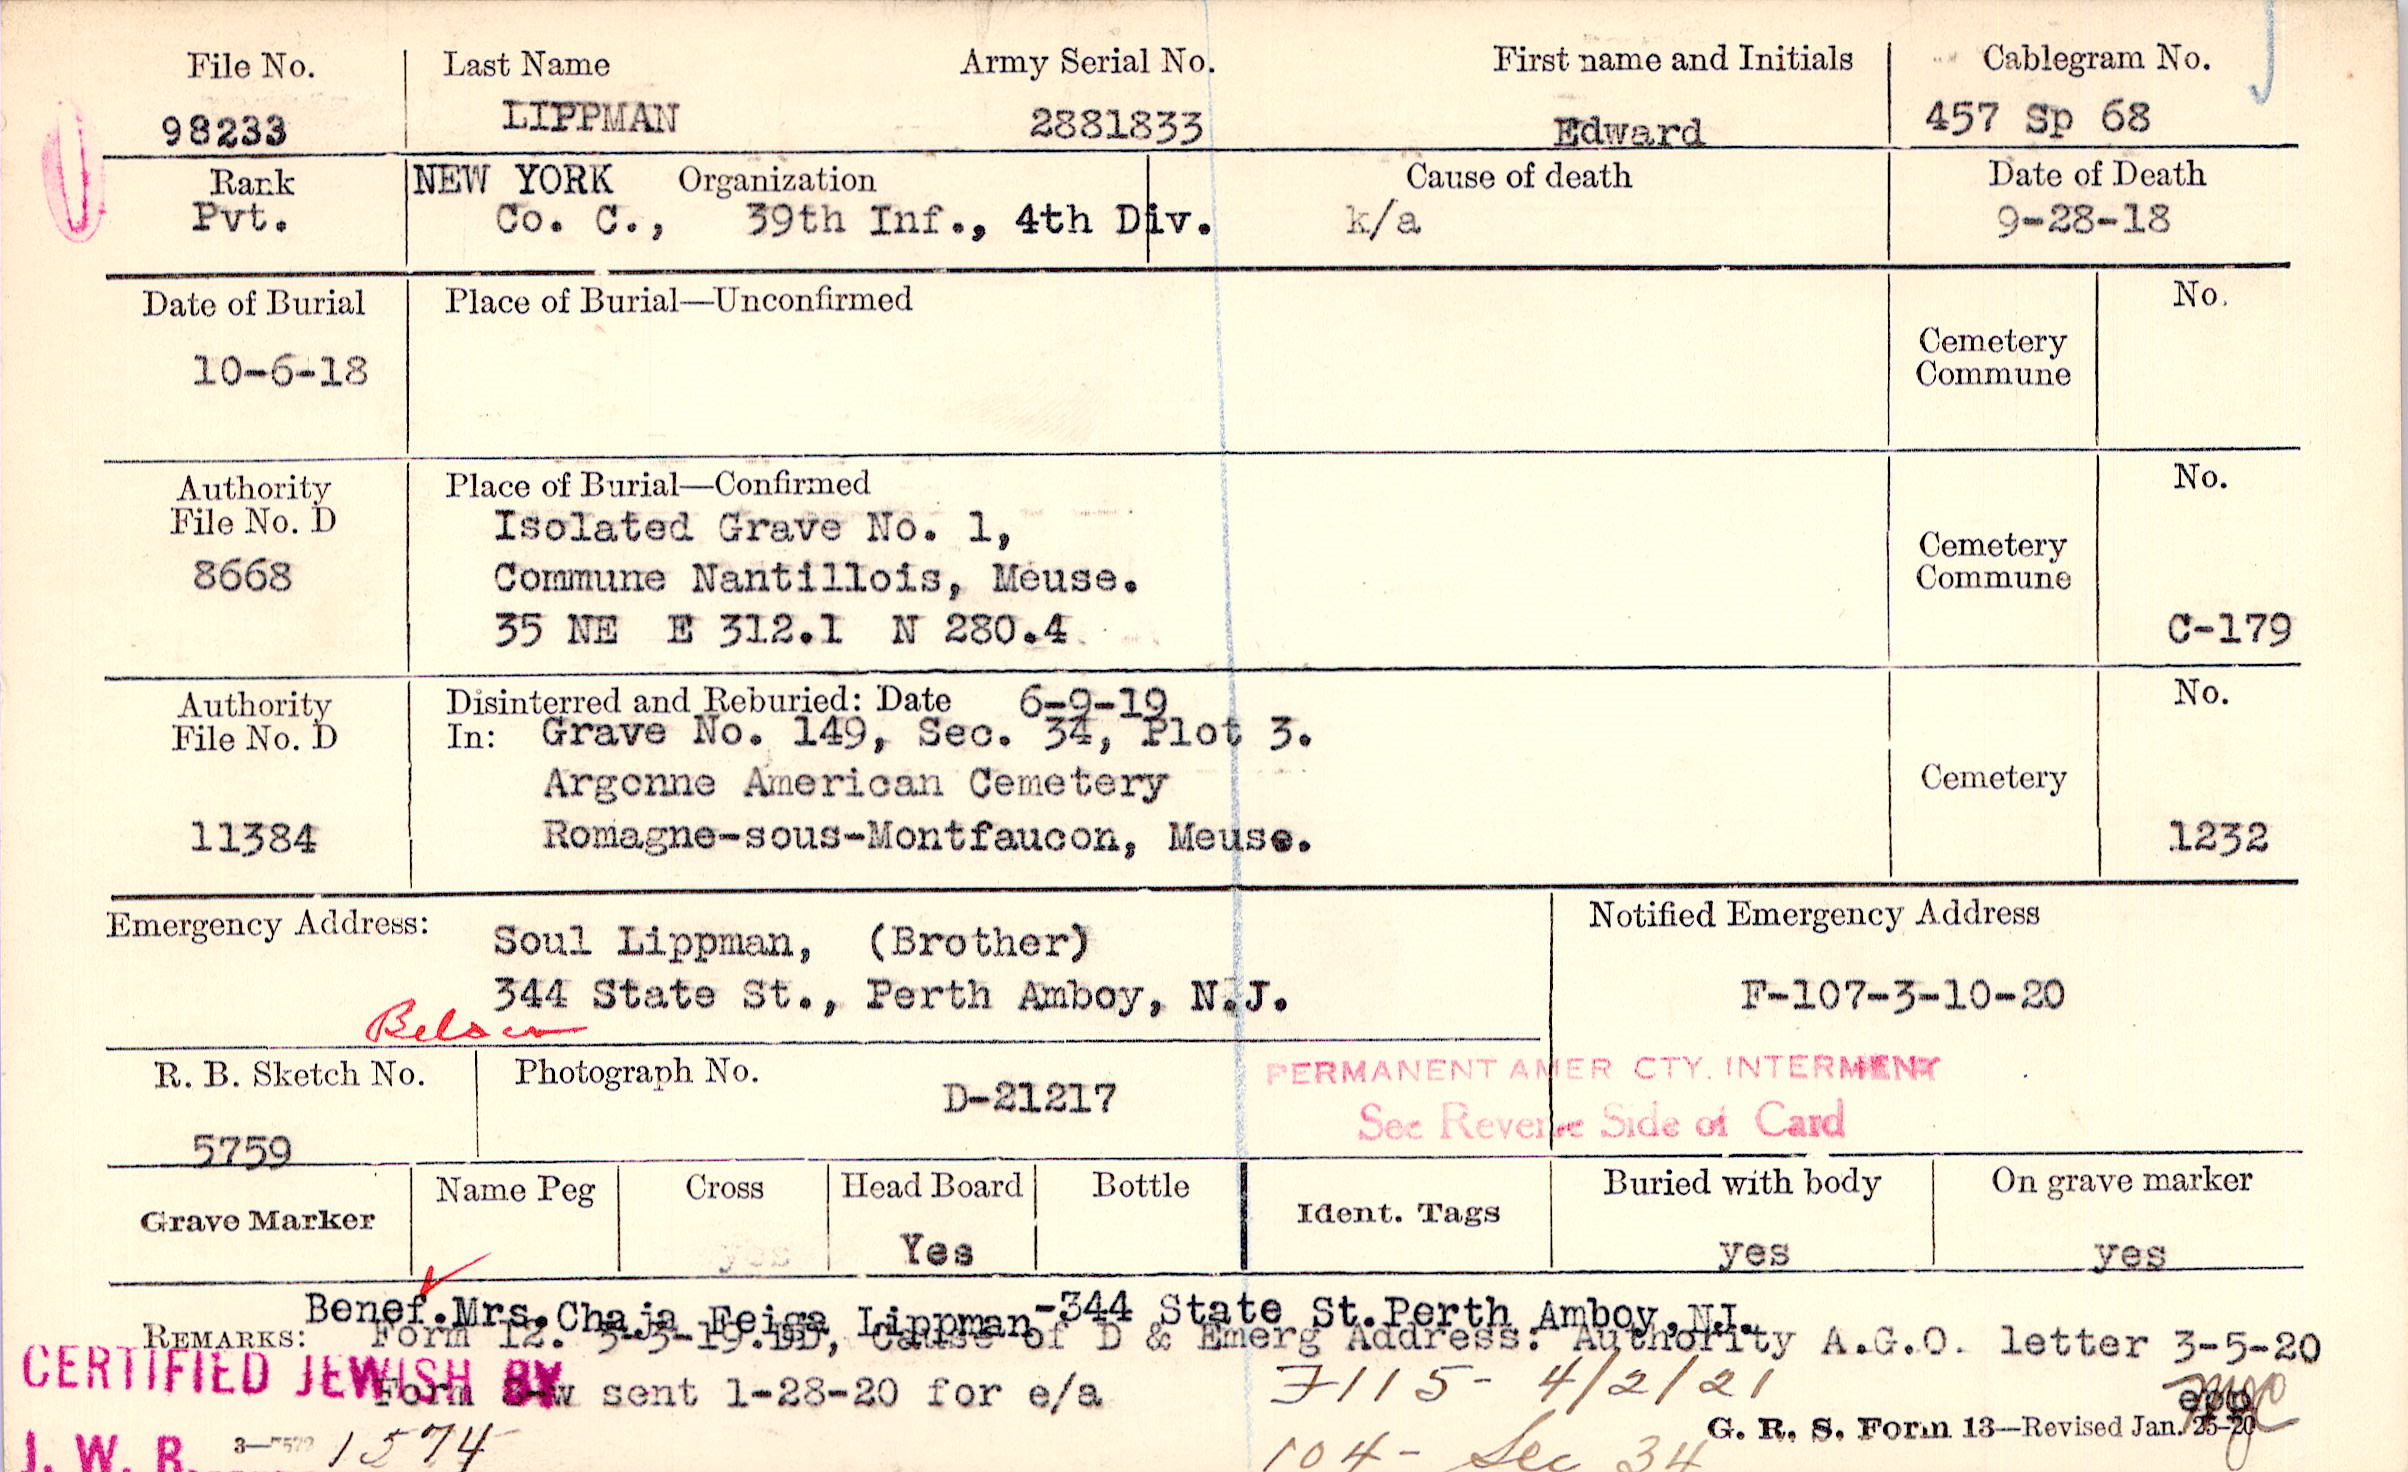 File No. Last Name Army Serial No. First name and Initials Cablegram No.
98233 LIPPMAN 2881833 Edward 457 Sp 68
Rank NEW YORK Organization Cause of death Date of Death
Pvt. Co. C., 39th Inf., 4th Div. k/a 9-28-18
Date of Burial Place of Burial—Unconfirmed No.
10-6-18 Cemetery
Commune
Authority Place of Burial—Confirmed No.
File No. D Isolated Grave No. 1, Cemetery
8668 Commune Nantillois, Meuse. Commune
35 NE E 312.1 N 280.4 C-179
Authority Disinterred and Reburied: Date 6-9-19 No.
File No. D In: Grave No. 149, Sec. 34, Plot 3.
Argonne American Cemetery Cemetery
11384 Romagne-sous-Montfaucon, Meuse. 1232
Emergency Address: Soul Lippman, (Brother) Notified Emergency Address
344 State St., Perth Amboy, N.J. F-107-3-10-20
Below
R. B. Sketch No. Photograph No. PERMANENT AMER CTY. INTERMENT
5759 D-21217 See Reverse Side of Card
Grave Marker Name Peg Cross Head Board Bottle Ident. Tags Buried with body On grave marker
yes Yes yes yes
Benef. Mrs. Chaja Feiga Lippman-344 State St. Perth Amboy, N.J.
REMARKS: Form 12. 3-3-19. DD, Cause of D & Emerg Address: Authority A.G.O. letter 3-5-20
CERTIFIED JEWISH BY Form 8-w sent 1-28-20 for e/a F115- 4/2/21
G. R. S. Form 13—Revised Jan. 25-20
J. W. B. 1574 104- Sec 34